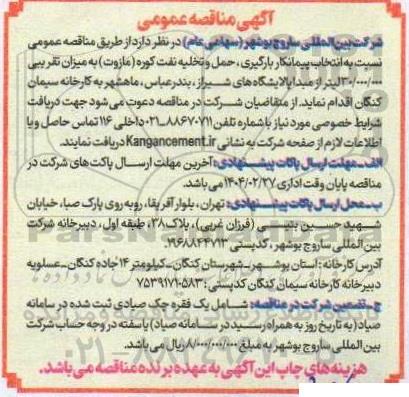 آگهی مناقصه عمومی
شرکت بین‌المللی ساروج بوشهر (سهامی عام) در نظر دارد از طریق مناقصه عمومی
نسبت به انتخاب پیمانکار بارگیری، حمل و تخلیه نفت کوره (مازوت) به میزان تقریبی
۳۰/۰۰۰/۰۰۰ لیتر از مبدا پالایشگاه‌های شیراز، بندرعباس، ماهشهر به کارخانه سیمان
کنگان اقدام نماید. از متقاضیان شرکت در مناقصه دعوت می شود جهت دریافت
شرایط خصوصی مورد نیاز با شماره تلفن ۸۸۶۷۰۷۱۱-۰۲۱ داخلی ۱۱۶ تماس حاصل و یا
اطلاعات لازم از صفحه شرکت به نشانی Kangancement.ir دریافت نمایند.
الف- مهلت ارسال پاکات پیشنهادی: آخرین مهلت ارسال پاکت های شرکت در
مناقصه پایان وقت اداری ۱۴۰۴/۰۲/۲۷ می باشد.
ب- محل ارسال پاکات پیشنهادی: تهران، بلوار آفریقا، روبه روی پارک صبا، خیابان
شهید حسین بلیسی (فرزان غربی)، پلاک ۳۸، طبقه اول، دبیرخانه شرکت
بین المللی ساروج بوشهر، کدپستی ۱۹۶۸۸۴۴۷۱۳
آدرس کارخانه: استان بوشهر- شهرستان کنگان- کیلومتر ۱۴ جاده کنگان- عسلویه
دبیرخانه کارخانه سیمان کنگان کدپستی: ۵۸۳-۷۵۳۹۱۷۱
ج- تضمین شرکت در مناقصه: شامل یک فقره چک صیادی ثبت شده در سامانه
صیاد (به تاریخ روز به همراه رسید در سامانه صیاد) یا سفته در وجه حساب شرکت
بین المللی ساروج بوشهر به مبلغ ۸/۰۰۰/۰۰۰/۰۰۰ ریال می باشد.
هزینه های چاپ این آگهی به عهده برنده مناقصه می باشد.